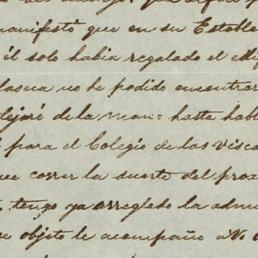 manifestó que en su Estable
él solo habia regalado el edi
no he podido encontrar
dejaré de la man: hasta habl
para el Colegio de las Visca
que correr la suerte del pro
tengo ya arreglado la adm
objeto le acompaño a V.